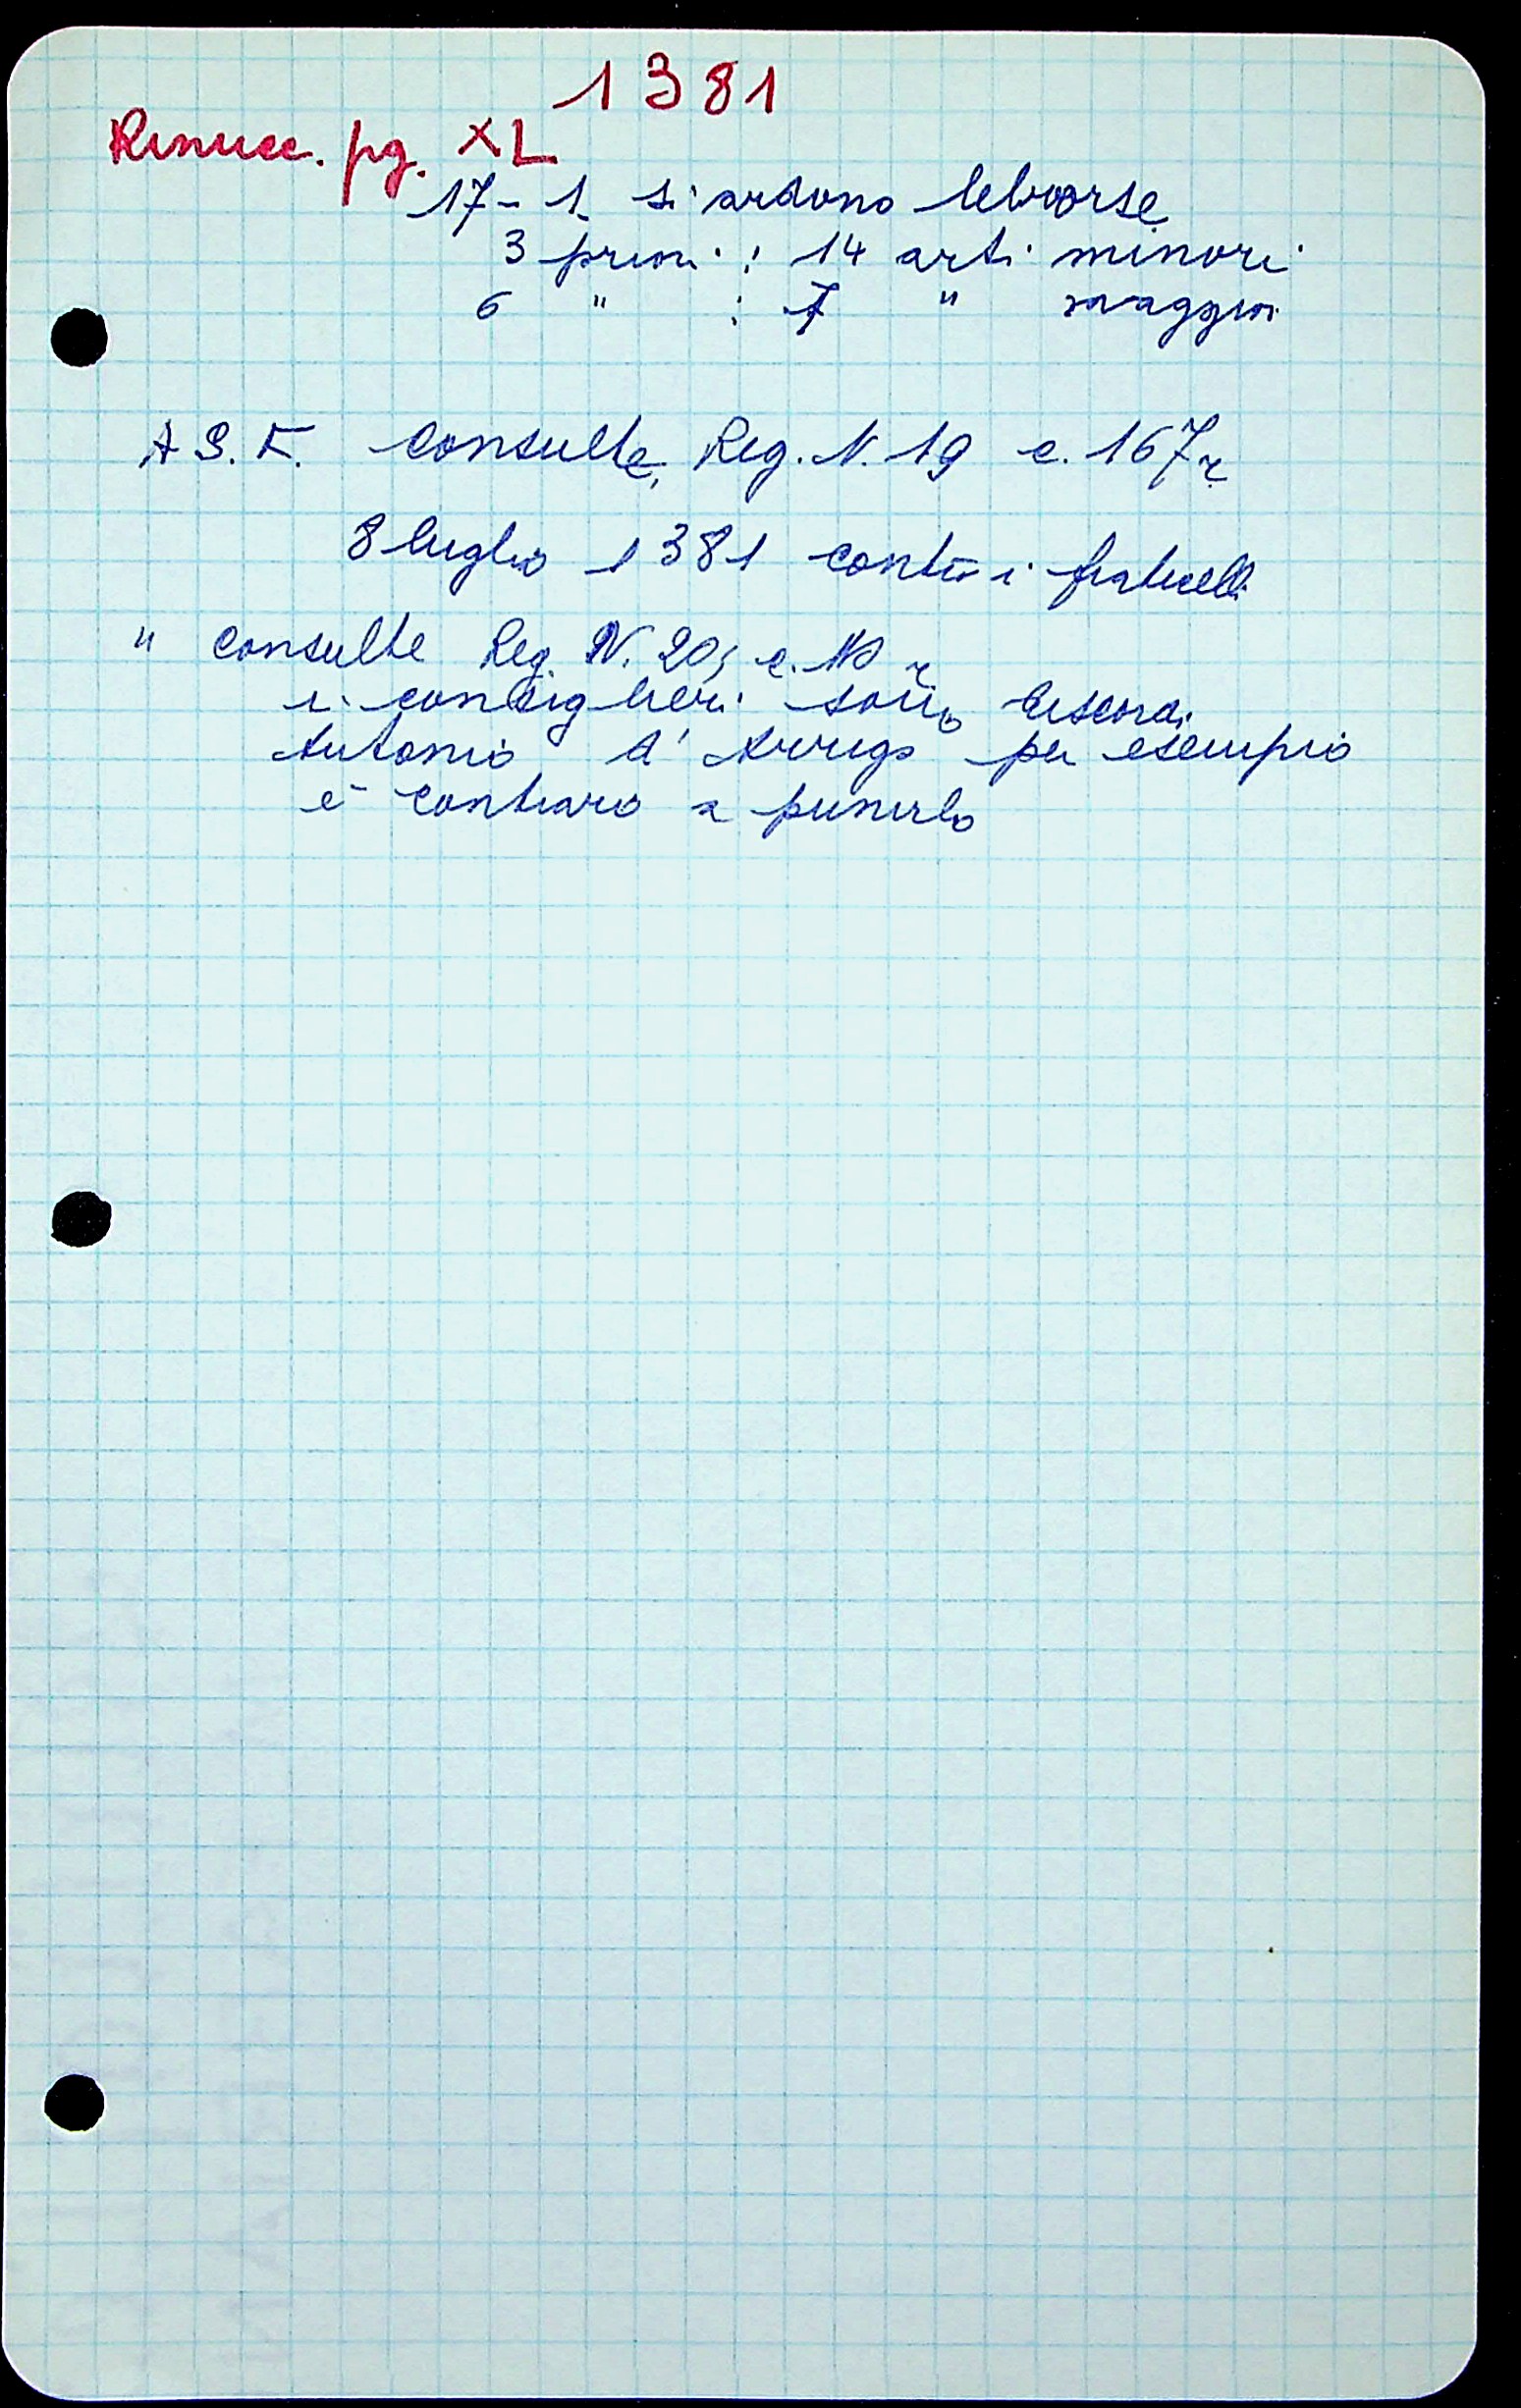 1381
Rinucc. pg. XL
17-1 si ardono le borse
3 priori : 14 arti minori
6 " : 7 " maggiori
A S. F. Consulte, Reg. N. 19 c. 167 r
8 luglio 1381 contro i fraticelli
" Consulte Reg. N. 20, c. r
i consiglieri sono discordi
Antonio d'Arrigo per esempio
è contrario a punirlo